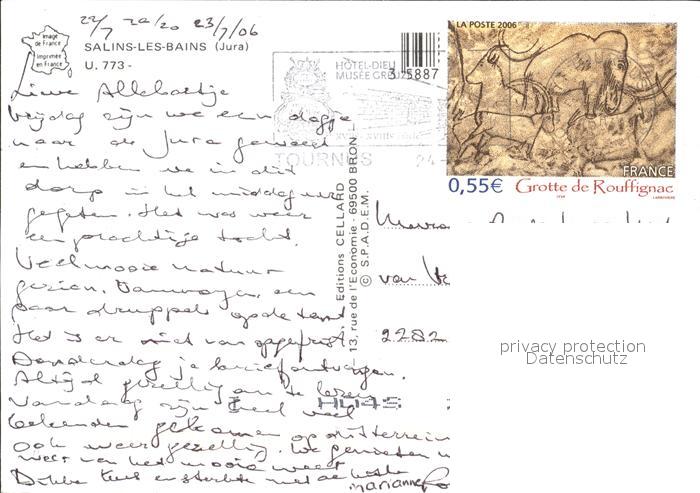 22/7 20/20 23/7/06
Image
de France
Imprimée
en France
SALINS-LES-BAINS (Jura)
U. 773 -
Lieve
Vrijdag zijn we een dagje
naar de Jura geweest
en hebben we in dit
dorp in het middag uur
gegeten. Het was weer
een prachtige tocht.
Veel mooie natuur
gezien. Vanmorgen een
paar druppels op de tent
Het is er niet van opgefrist
Donderdag je brief ontvangen.
Altijd gezellig om te lezen
Vandaag zijn heel veel
bekenden gekomen op dit terrein
ook weer gezellig. We genieten
weer van het mooie weer
Dikke en sterkte met de
Marianne
HÔTEL-DIEU
MUSÉE GREUZE
TOURNUS
24-
5887
Editions CELLARD
13, rue de l'Economie - 69500 BRON
© S.P.A.D.E.M.
LA POSTE 2006
FRANCE
0,55€ Grotte de Rouffignac
van
2282
privacy protection
Datenschutz